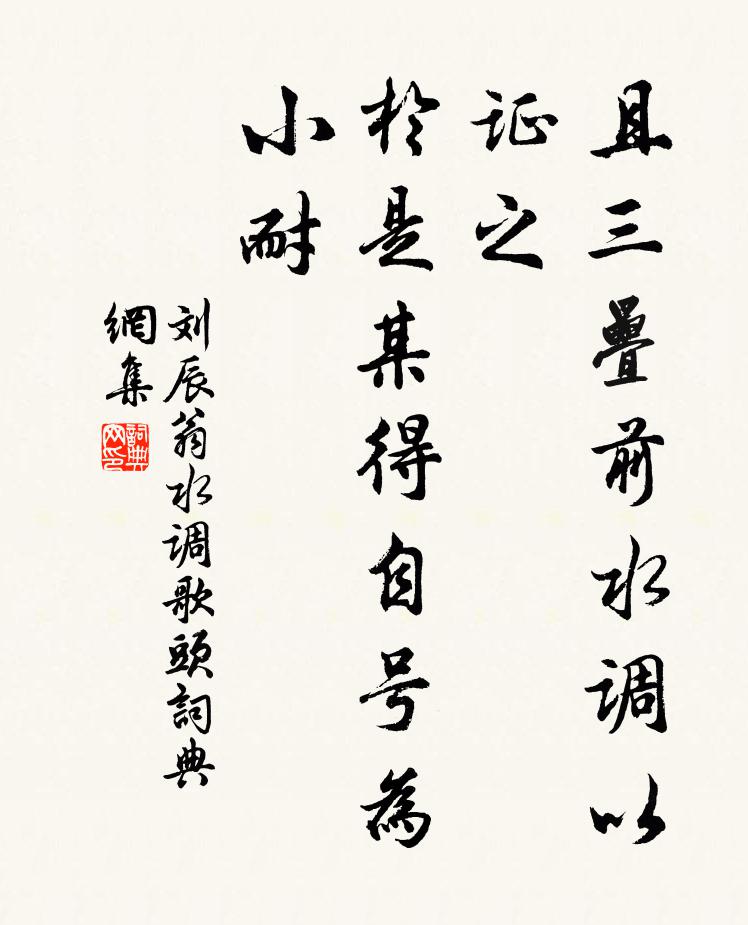 且三疊前水调以
证之
於是某得自号為
小耐
刘辰翁水调歌頭詞典
網集
詞典
网印